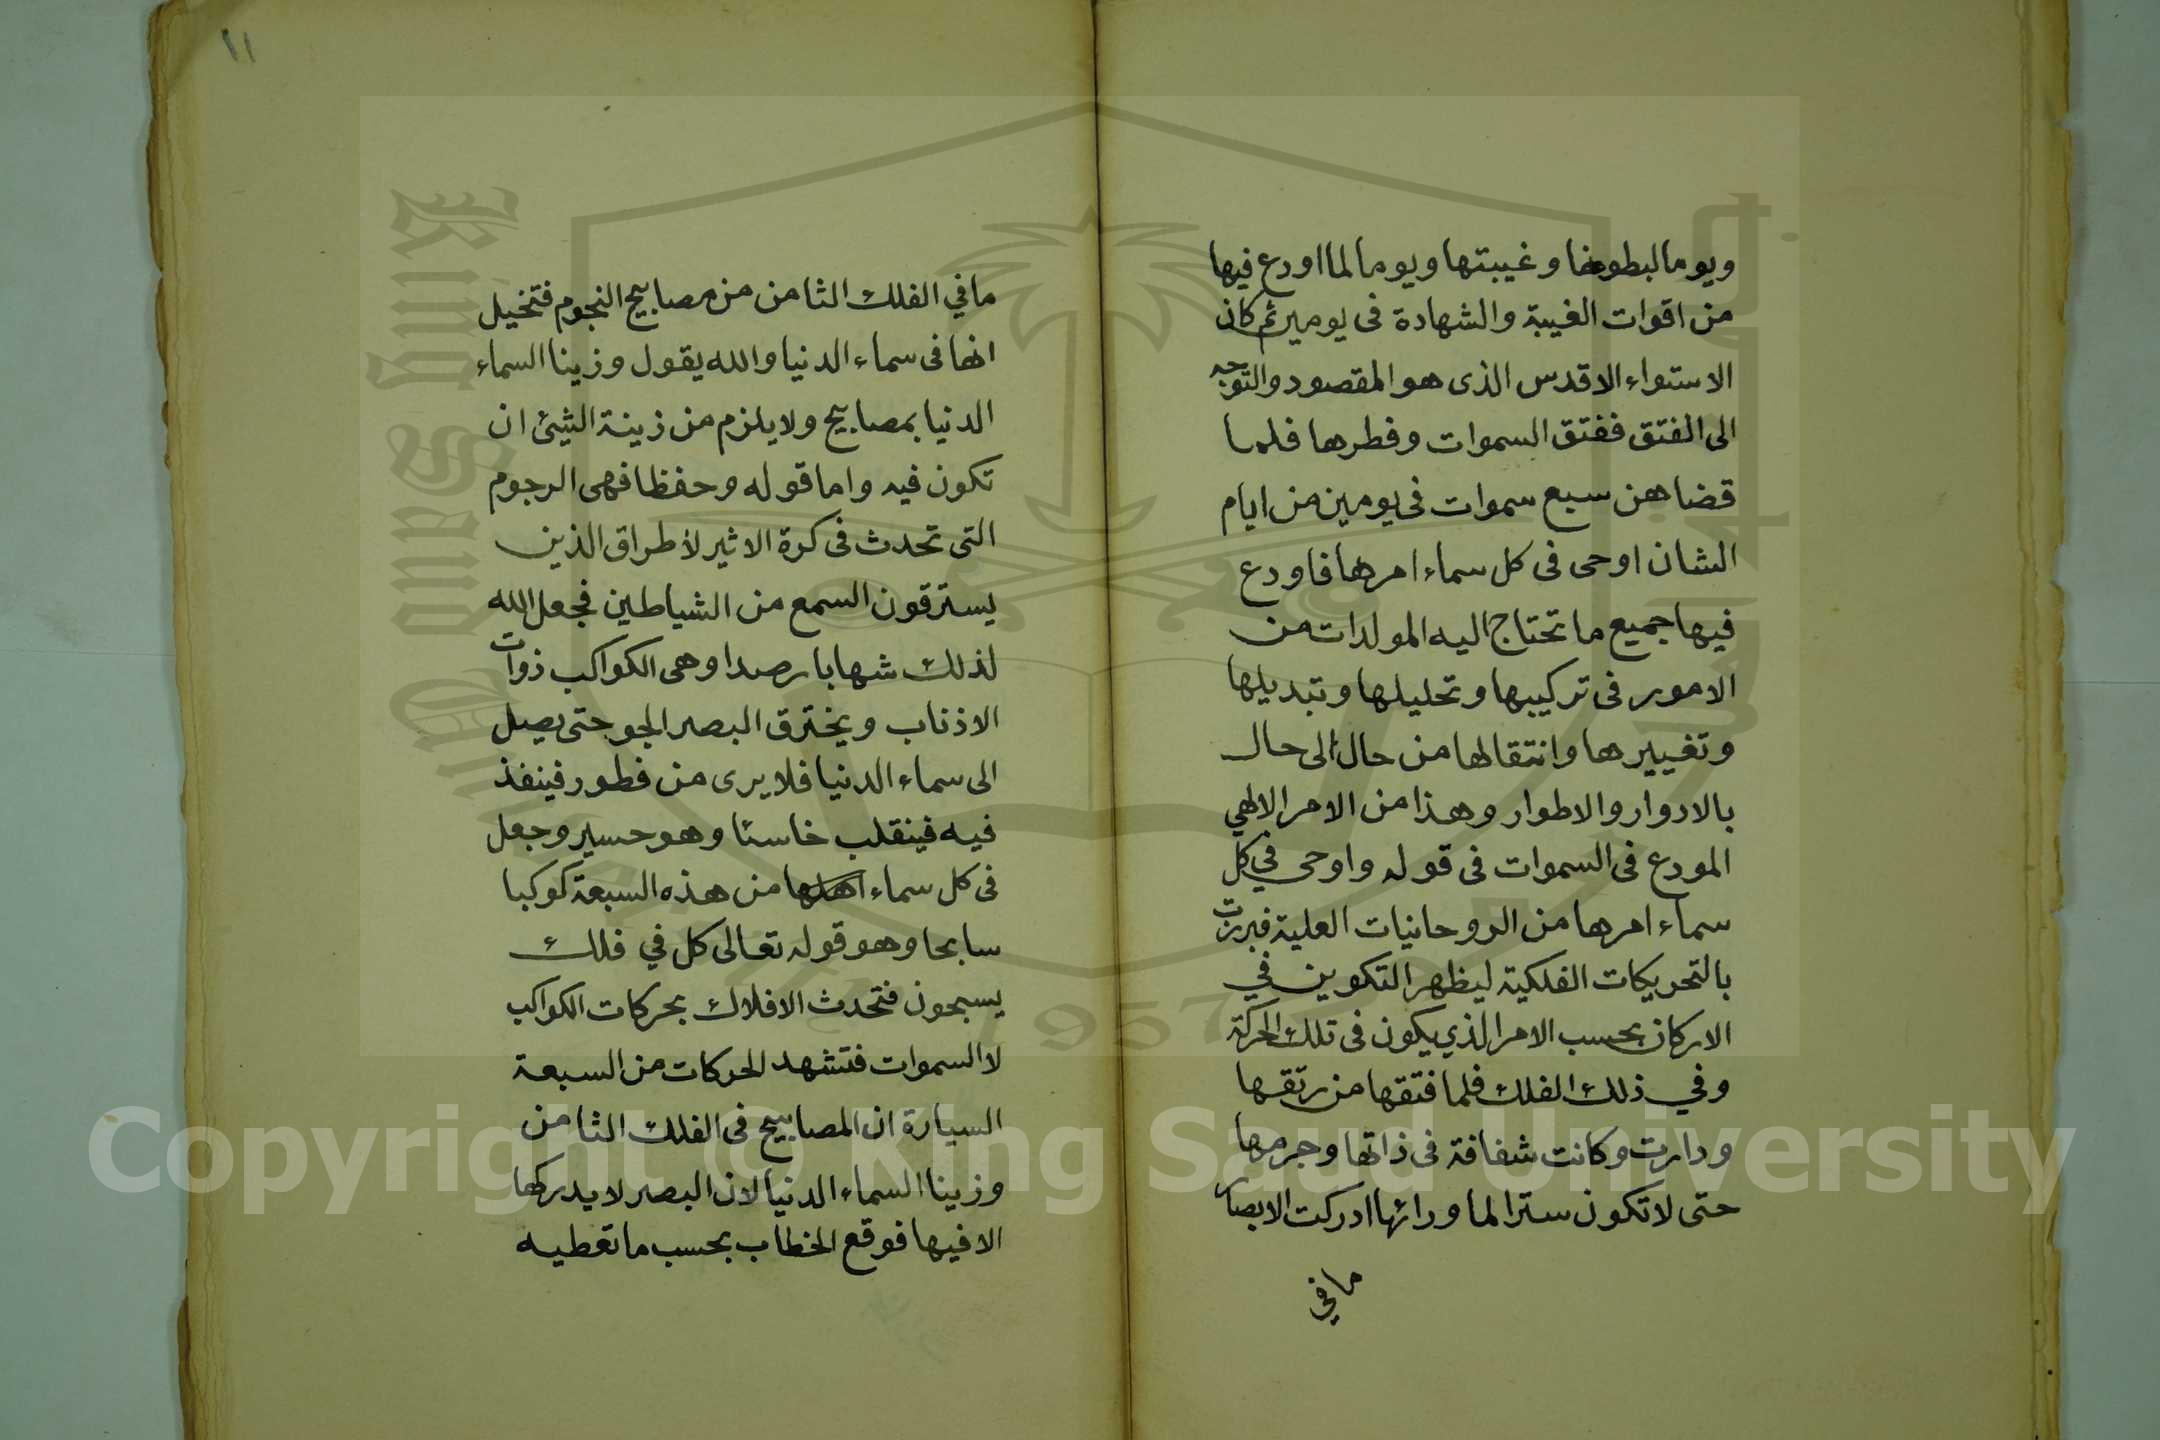 ويوما لبطونها وغيبتها ويوما لما اودع فيها
من اقوات الغيبة والشهادة فى يومين ثم كان
الاستواء الاقدس الذى هو المقصود والتوجه
الى الفتق ففتق السموات وفطرها فلما
قضاهن سبع سموات فى يومين من ايام
الشان اوحى فى كل سماء امرها فاودع
فيها جميع ما تحتاج اليه المولدات من
الامور فى تركيبها وتحليلها وتبديلها
وتغييرها وانتقالها من حال الى حال
بالادوار والاطوار وهذا من الامر الالهي
المودع فى السموات فى قوله واوحى في كل
سماء امرها من الروحانيات العلية فبرزت
بالتحريكات الفلكية ليظهر التكوين في
الاركان بحسب الامر الذي يكون فى تلك الحركة
وفي ذلك الفلك فلما فتقها من رتقها
ودارت وكانت شفافة فى ذاتها وجرمها
حتى لا تكون سترا لما ورائها ادركت الابصار
ما في
١١
ما في الفلك الثامن من مصابيح النجوم فتخيل
انها فى سماء الدنيا والله يقول وزينا السماء
الدنيا بمصابيح ولا يلزم من زينة الشئ ان
تكون فيه واما قوله وحفظا فهى الرجوم
التى تحدث فى كرة الاثير لاطراق الذين
يسترقون السمع من الشياطين فجعل الله
لذلك شهابا رصدا وهى الكواكب ذوات
الاذناب ويخترق البصر الجو حتى يصل
الى سماء الدنيا فلا يرى من فطور فينفذ
فيه فينقلب خاسئا وهو حسير وجعل
فى كل سماء من هذه السبعة كوكبا
سابحا وهو قوله تعالى كل في فلك
يسبحون فتحدث الافلاك بحركات الكواكب
لا السموات فتشهد الحركات من السبعة
السيارة ان المصابيح فى الفلك الثامن
وزينا السماء الدنيا لان البصر لا يدركها
الا فيها فوقع الخطاب بحسب ما تعطيه
King Saud University
1957
Copyright © King Saud University